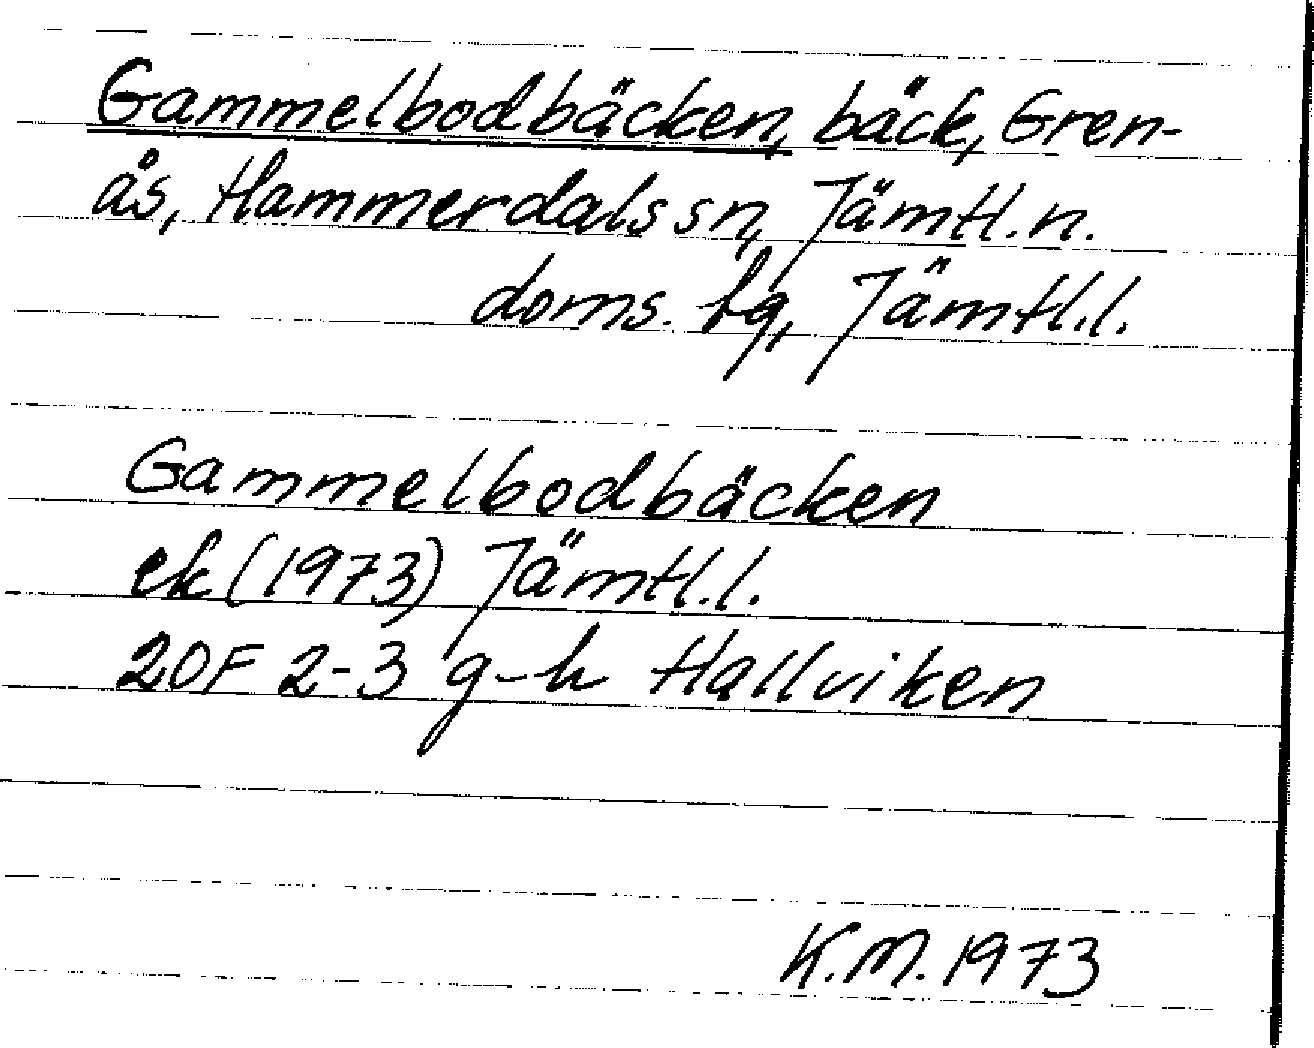 Gammelbodbäcken, bäck, Gren-
ås, Hammerdals sn, Jämtl. n.
doms. fg, Jämtl. l.
Gammelbodbäcken
ek (1973) Jämtl. l.
20F 2-3 g-h Hallviken
K.M. 1973